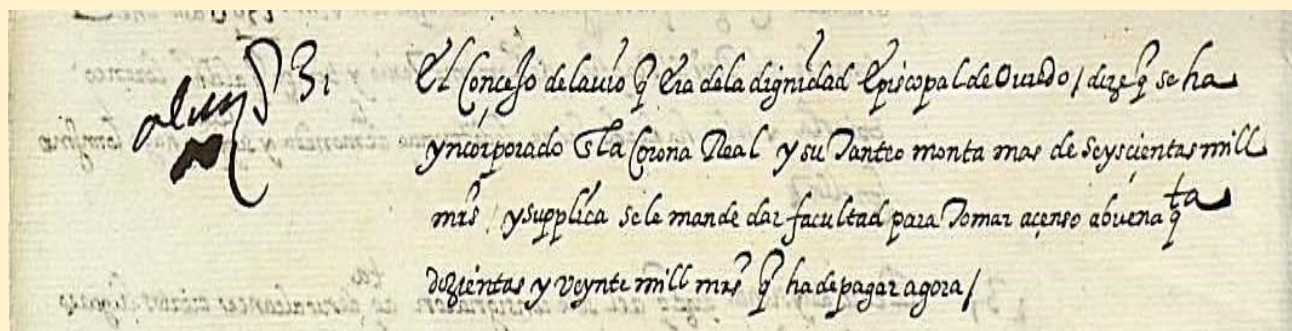 31 El Concejo de lauio q̃ Era de la dignidad Episcopal de Ouiedo / dize q̃ se ha
yncorporado En la Corona Real y su Tanteo monta mas de seyscientas mill
mrs / y supplica se le mande dar facultad para Tomar açenso abuena qta
dozientas y veynte mill mrs q̃ ha de pagar agora /